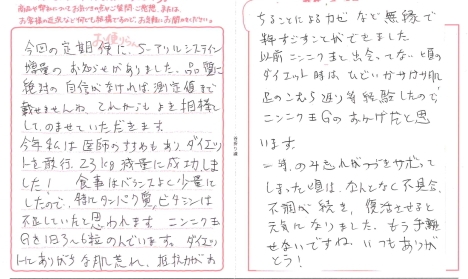 商品や弊社についてお気づきの点やご質問・ご感想、または
お客様の近況など何でも結構ですので、お気軽にお聞かせください。
今回の定期便に、S-アリルシステイン
増量のお知らせがありました。品質に
絶対の自信がなければ、測定値まで
載せませんね。これからもよき相棒と
して、のませていただきます。
今年私は医師のすすめもありダイエッ
トを敢行、23kg減量に成功しまし
た！ 食事はバランスよく少量に
したので、特にタンパク質、ビタミンは
不足していたと思われます。ニンニク玉
Gを1日3〜6粒のんでいます。ダイエッ
トにありがちな肌荒れ、抵抗力がお
ちることによるカゼなど無縁で
秋すごすことができました
以前ニンニク玉と出会ってない頃の
ダイエット時は、ひどいカサカサ肌
足のこむら返り等経験したので
ニンニク玉Gのおかげだと思
います。
一年、のみ忘ればっかをサボって
しまった頃は、なんとなく不具合、
不調が続き、復活させると
元気になりました。もう手離
せないですね。いつもありが
とう！